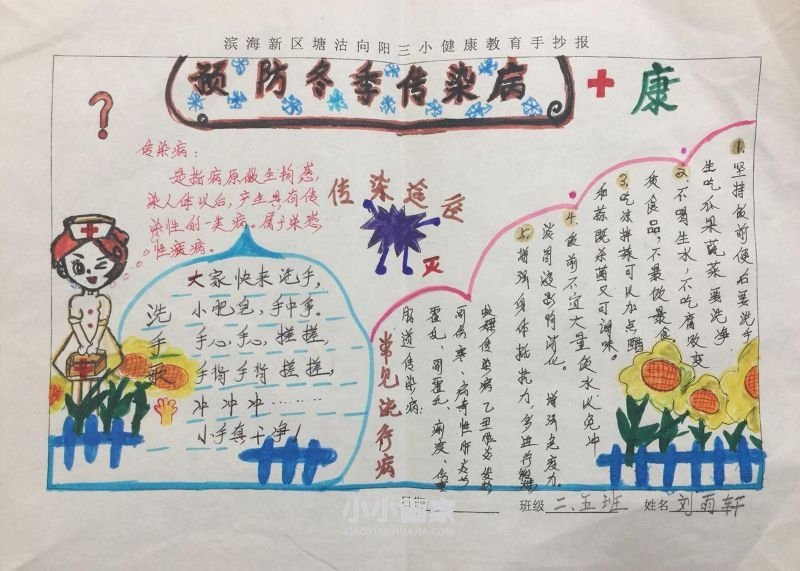 滨海新区塘沽向阳三小健康教育手抄报
预防冬季传染病
康
传染病:
是指病原微生物感
染人体以后,产生具有传
染性的一类病。属于感染
性疾病。
传染途径
灭
洗手歌
大家快来洗手,
小肥皂,手中拿。
手心,手心,搓搓,
手背手背搓搓,
冲冲冲………
小手真干净!
常见流行病
肠道传染病:
霍乱、副霍乱、痢疾、伤
1.坚持饭前便后要洗手
生吃瓜果蔬菜要洗净
2.不喝生水,不吃腐败变
质食品,不暴饮暴食。
3.吃凉拌菜可以加点醋
和蒜既杀菌又可调味。
4.饭前不宜大量饮水以免冲
淡胃液影响消化。
5.增强身体抵抗力,多进行锻炼
增强免疫力。
班级 二、五班 姓名 刘雨轩
小小画家
XIAOXIAOHUAJIA.COM